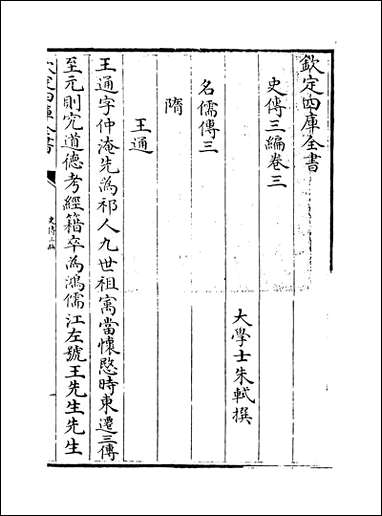 欽定四庫全書
史傳三編卷三
大學士朱軾撰
名儒傳三
隋
王通
王通字仲淹先為祁人九世祖寓當懷愍時東遷三傳
至元則究道德考經籍卒為鴻儒江左號王先生先生
欽定四庫全書
史傳三編